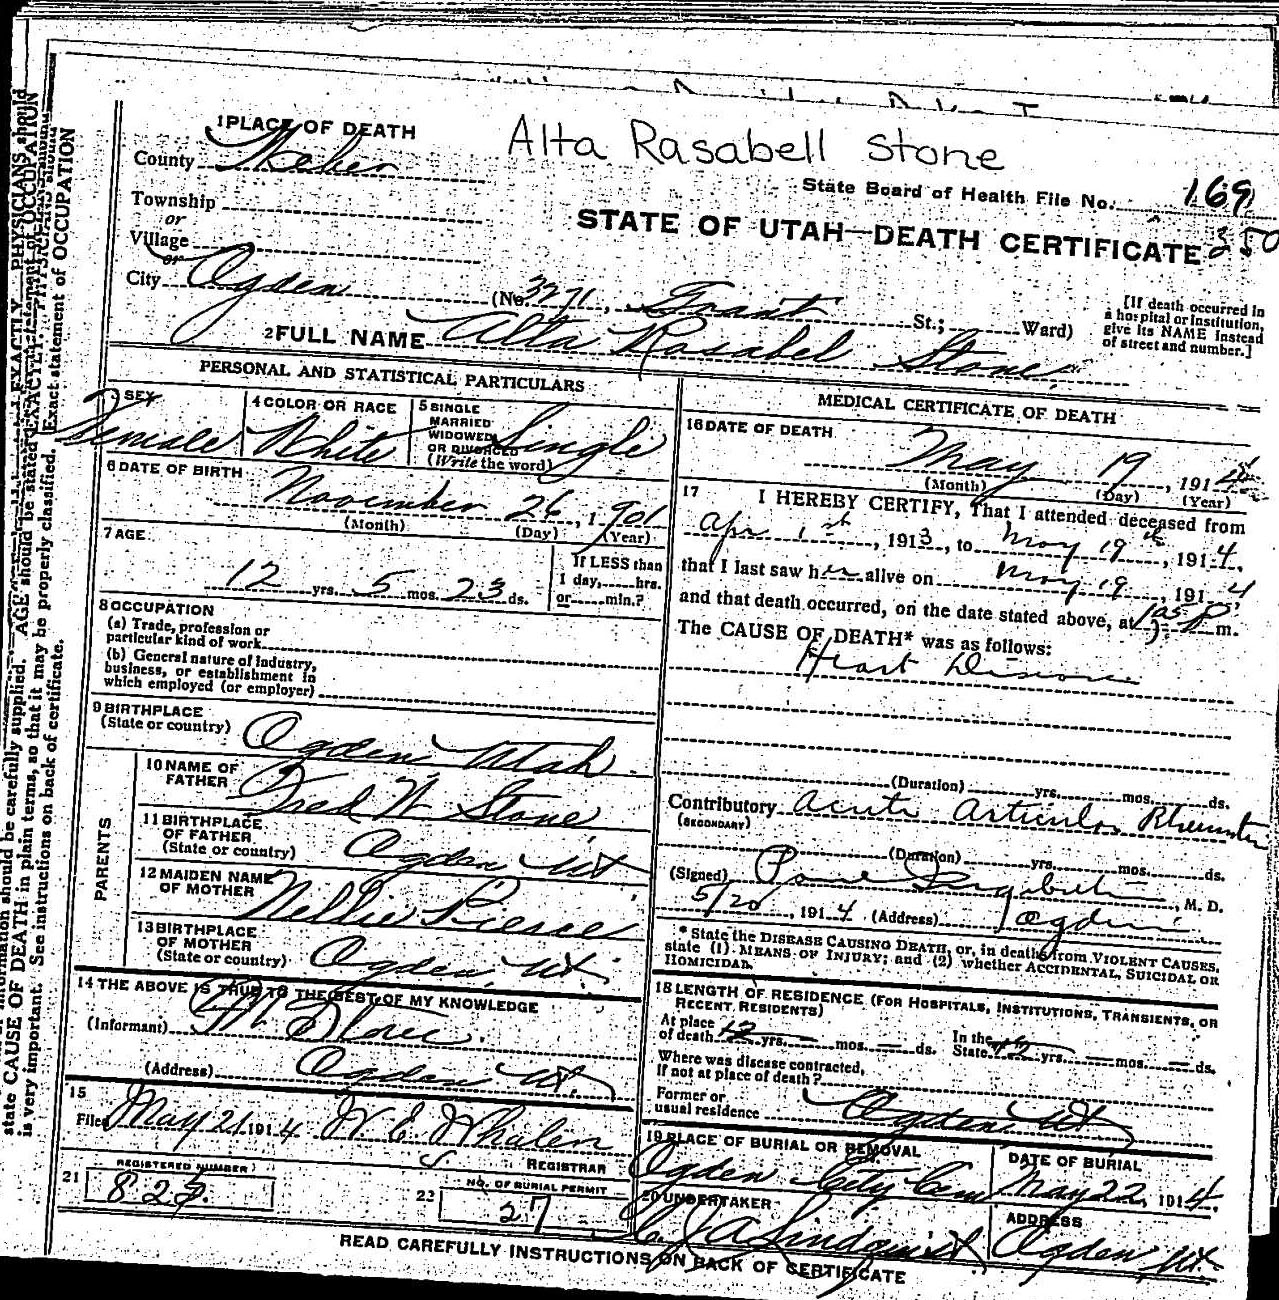 Alta Rasabell Stone
1 PLACE OF DEATH
County Weber
State Board of Health File No. 169
Township
or
Village
or
STATE OF UTAH—DEATH CERTIFICATE 350
City Ogden (No. 3271, Grant St.; Ward)
[If death occurred in a hospital or institution, give its NAME instead of street and number.]
2 FULL NAME Alta Rasabel Stone
PERSONAL AND STATISTICAL PARTICULARS
3 SEX Female
4 COLOR OR RACE White
5 SINGLE MARRIED WIDOWED OR DIVORCED (Write the word) Single
6 DATE OF BIRTH
November 26, 1901
(Month) (Day) (Year)
7 AGE
12 yrs. 5 mos. 23 ds.
If LESS than 1 day, hrs. or min.?
8 OCCUPATION
(a) Trade, profession or particular kind of work
(b) General nature of industry, business, or establishment in which employed (or employer)
9 BIRTHPLACE
(State or country) Ogden Utah
PARENTS
10 NAME OF FATHER Fred W Stone
11 BIRTHPLACE OF FATHER (State or country) Ogden Ut
12 MAIDEN NAME OF MOTHER Nellie Pierce
13 BIRTHPLACE OF MOTHER (State or country) Ogden Ut.
14 THE ABOVE IS TRUE TO THE BEST OF MY KNOWLEDGE
(Informant) Stone
(Address) Ogden Ut.
15
Filed May 21 1914 W. E. Whalen
REGISTRAR
21 REGISTERED NUMBER 825
22 NO. OF BURIAL PERMIT 27
MEDICAL CERTIFICATE OF DEATH
16 DATE OF DEATH
May 19, 1914
(Month) (Day) (Year)
17 I HEREBY CERTIFY, That I attended deceased from
Apr 1st, 1913, to May 19th, 1914.
that I last saw her alive on May 19, 1914
and that death occurred, on the date stated above, at m.
The CAUSE OF DEATH* was as follows:
Heart Disease
(Duration) yrs. mos. ds.
Contributory Acute Articular
(SECONDARY)
(Duration) yrs. mos. ds.
(Signed) M. D.
5/20, 1914 (Address) Ogden
* State the DISEASE CAUSING DEATH, or, in deaths from VIOLENT CAUSES,
state (1) MEANS OF INJURY; and (2) whether ACCIDENTAL, SUICIDAL OR
HOMICIDAL
18 LENGTH OF RESIDENCE (FOR HOSPITALS, INSTITUTIONS, TRANSIENTS, OR
RECENT RESIDENTS)
At place of death 12 yrs. — mos. — ds. In the State 12 yrs. — mos. — ds.
Where was disease contracted,
if not at place of death?
Former or
usual residence Ogden, Ut
19 PLACE OF BURIAL OR REMOVAL
Ogden City Cem
DATE OF BURIAL
May 22, 1914
20 UNDERTAKER
Lindquist
ADDRESS
Ogden Ut.
READ CAREFULLY INSTRUCTIONS ON BACK OF CERTIFICATE
information should be carefully supplied. AGE should be stated EXACTLY. PHYSICIANS should
state CAUSE OF DEATH in plain terms, so that it may be properly classified. Exact statement of OCCUPATION
is very important. See instructions on back of certificate.